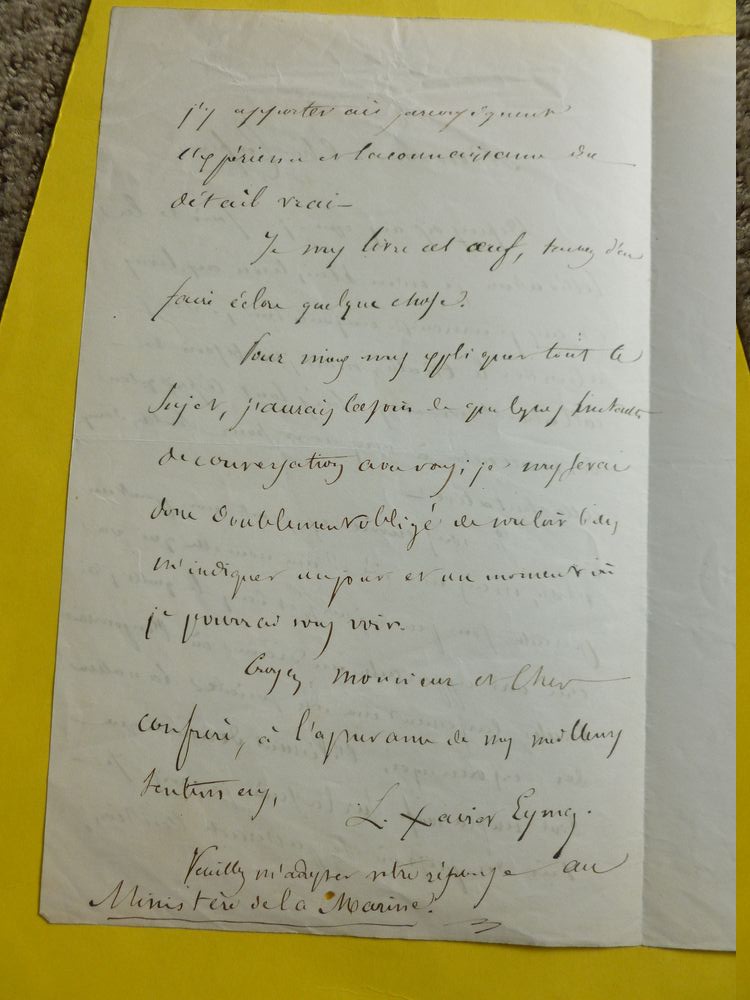 j'y apporterais par conséquent
l'expérience et la connaissance du
détail vrai —
Je vous livre cet œuf, tenez d'en
faire éclore quelque chose.
Pour mieux vous expliquer tout le
sujet, j'aurais besoin de quelques instants
de conversation avec vous; je vous serai
donc doublement obligé de vouloir bien
m'indiquer un jour et un moment où
je pourrai vous voir.
Croyez, monsieur et cher
confrère, à l'assurance de mes meilleurs
sentimens,
L. Xavier Eyma.
Veuillez m'adresser votre réponse au
Ministère de la Marine.